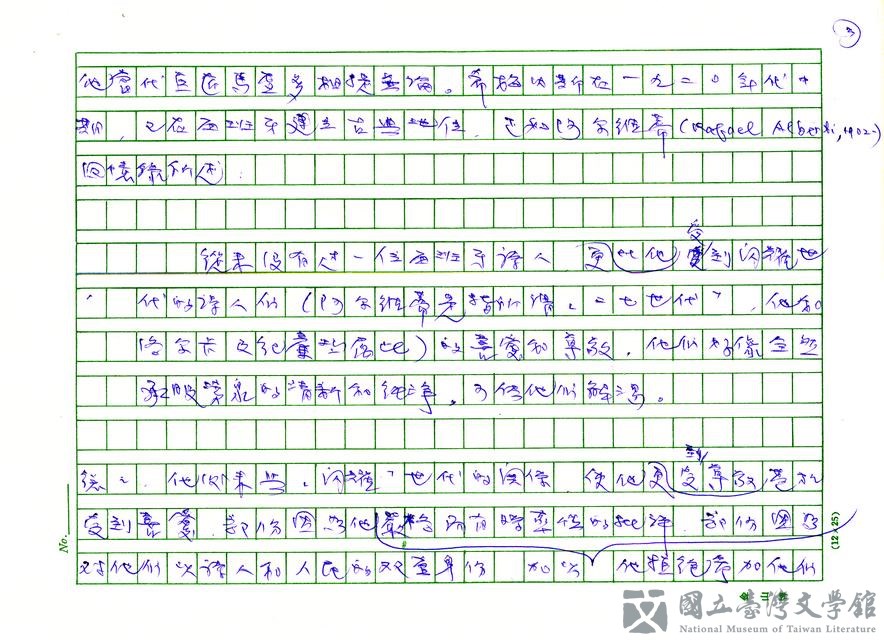 3
他當代直在馬查多相提並論。希梅以斯在一九二〇年代中
期,已在西班牙建立古典地位,正如阿尔維蒂(Rafael Alberti, 1902-)
回憶錄所述:
從來沒有人一位西班牙詩人 更比他受到閃耀地
一代的詩人们(阿尔維蒂是指所謂「二七世代」,他和
洛尔卡及紀彥均屬此)的喜愛和尊敬,他们好像全然
承服榮泉的清新和純淨,可供他们解渴。
總之,他似乎與「閃耀」世代的關係,使他更受到尊敬甚於
受到喜愛,部份因為他嚴格而有時率性的批評,部份因為
对他们以詩人和人民的双重身份 加以 他拒絕參加他们
No.
(12×25)
國立臺灣文學館
National Museum of Taiwan Literature